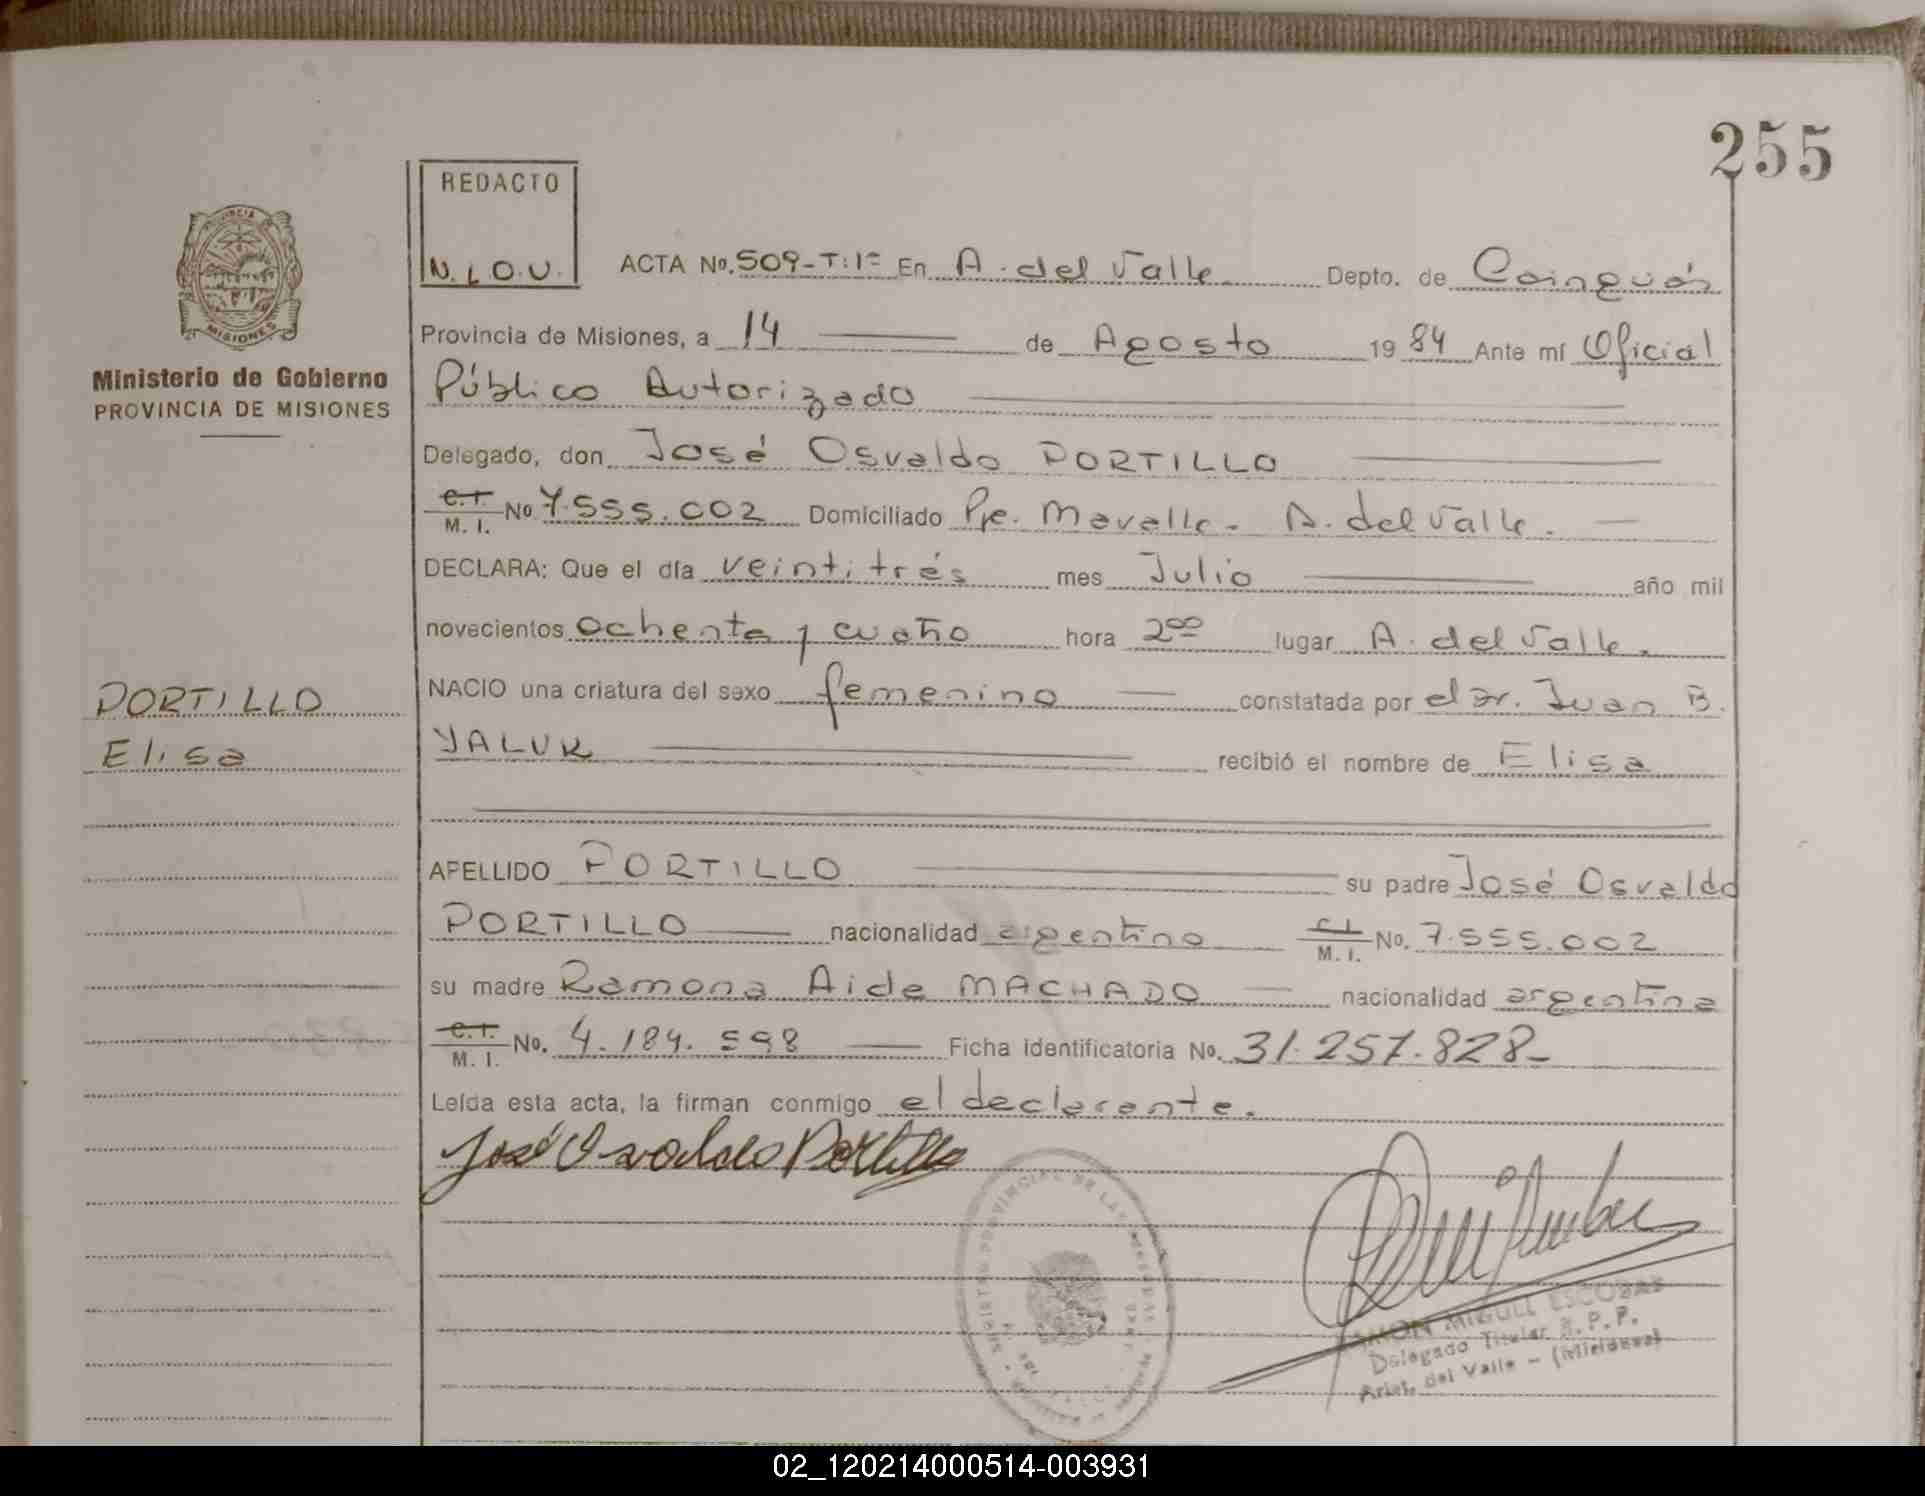 255
REDACTO
N. L O. U.
PROVINCIA
MISIONES
Ministerio de Gobierno
PROVINCIA DE MISIONES
ACTA No. 509-T:1º En A. del Valle Depto. de Cainguás
Provincia de Misiones, a 14 de Agosto 19 84 Ante mí Oficial
Público Autorizado
Delegado, don José Osvaldo PORTILLO
C.I. M. I. No 7.555.002 Domiciliado Pje. Mavalle - A. del Valle.
DECLARA: Que el día veintitrés mes Julio año mil
novecientos ochenta y cuatro hora 2ºº lugar A. del Valle.
PORTILLO
Elisa
NACIO una criatura del sexo femenino constatada por el Dr. Juan B.
YALUK recibió el nombre de Elisa
APELLIDO PORTILLO su padre José Osvaldo
PORTILLO nacionalidad argentino C.I. M. I. No. 7.555.002
su madre Ramona Aide MACHADO nacionalidad argentina
C.I. M. I. No. 4.184.598 Ficha identificatoria No. 31.257.828-
Leída esta acta, la firman conmigo el declarante.
José Osvaldo Portillo
PROVINCIAL DE LAS
MIGUEL ESCOBAR
Delegado Titular R. P. P.
Arist. del Valle - (Misiones)
02_120214000514-003931